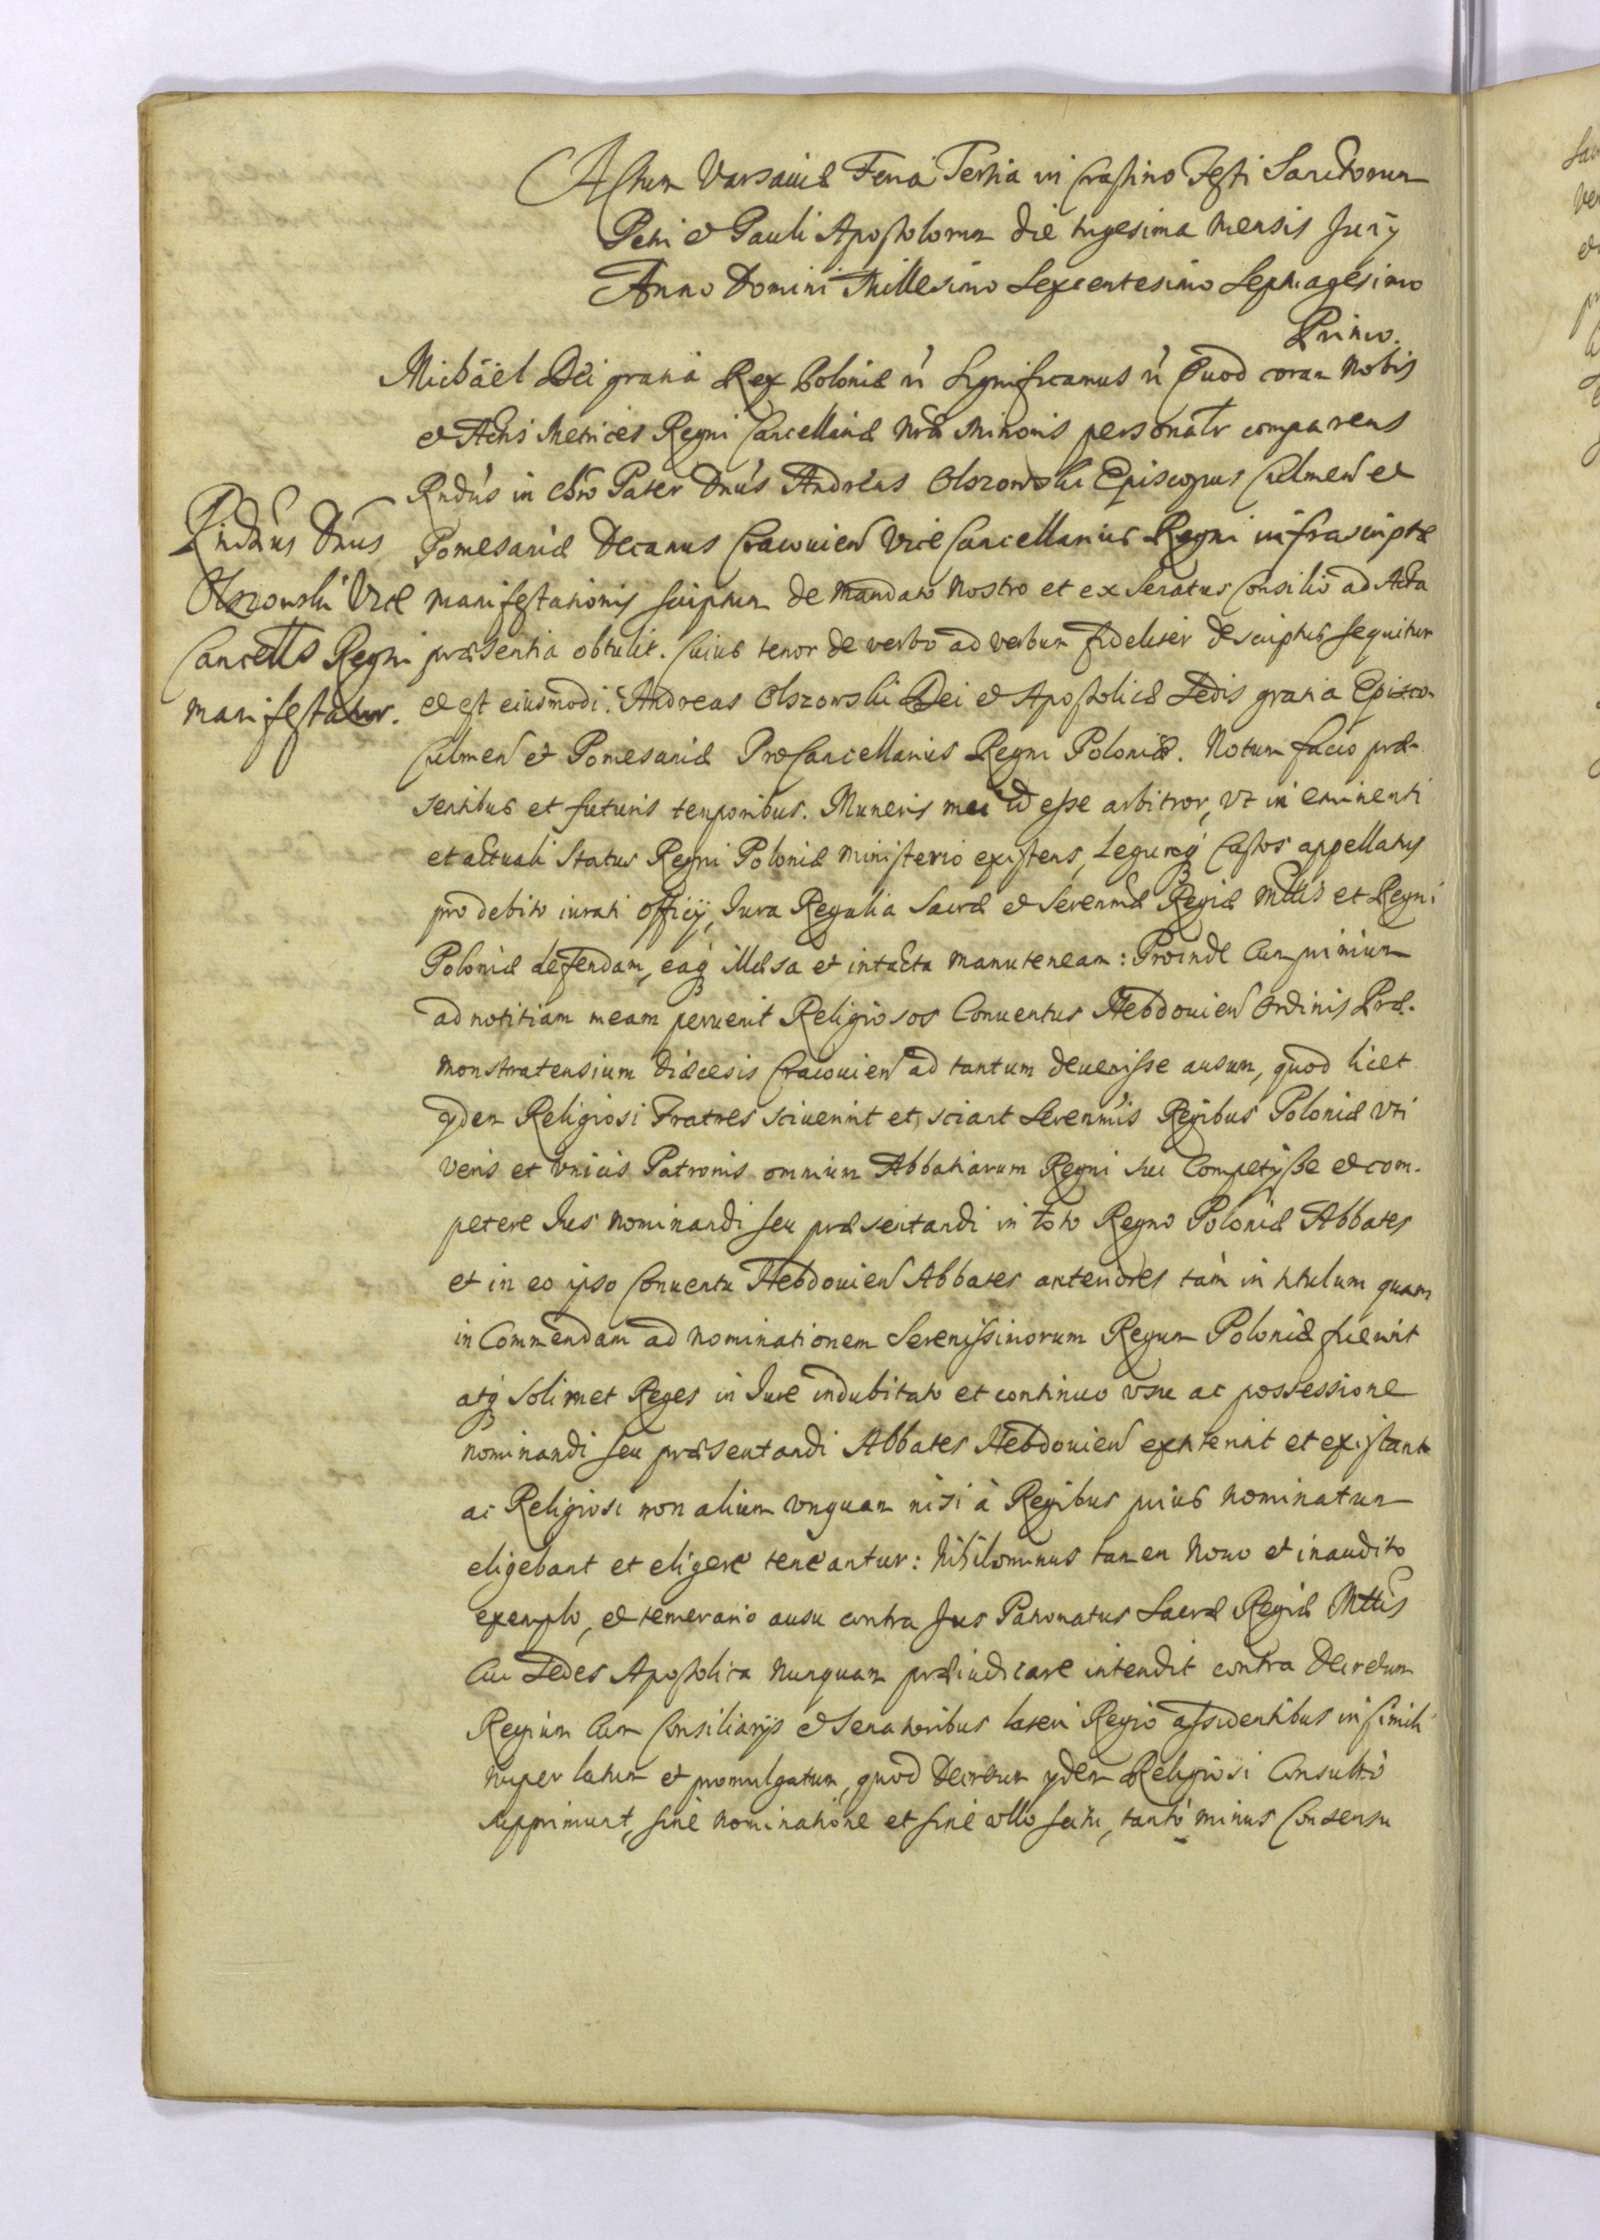 Actum Varsaviæ Feria Tertia in Crastino Festi Sanctorum
Petri et Pauli Apostolorum die trigesima mensis Junÿ
Anno Domini Millesimo Sexcentesimo Septuagesimo
Primo.
Michäel Dei gratia Rex Poloniæ Significamus Quod coram Nobis
et Actis Metrices Regni Cancellariæ Nræ Minoris personalr comparens
Rndus in Chro Pater Dnus Andreas Olszowski Episcopus Culmen et
Pomesaniæ Decanus Cracouien Vice Cancellarius Regni infrascriptæ
manifestationis scriptum de mandato Nostro et ex Senatus Consilio ad Acta
præsentia obtulit. Cuius tenor de verbo ad verbum fideliter descriptus sequitur
et est eiusmodi. Andreas Olszowski Dei et Apostolicæ Sedis gratia Episco.
Culmen et Pomesaniæ ProCancellarius Regni Poloniæ. Notum facio præ-
sentibus et futuris temporibus. Muneris mei id esse arbitror, vt in eminenti
et actuali Status Regni Poloniæ ministerio existens, Legumq Custos appellatus
pro debito iurati officÿ, Iura Regalia Sacræ et Serenmæ Regiæ Mttis et Regni
Poloniæ defendam, eaq illæsa et intacta manuteneam: Proinde Cum primum
ad notitiam meam peruenit Religiosos Conuentus Hebdouien Ordinis Præ-
monstratensium Diæcesis Cracouien ad tantum deuenisse ausum, quod licet
ÿdem Religiosi Fratres sciuerint et sciant Serenmis Regibus Poloniæ vti
veris et vnicis Patronis omnium Abbatiarum Regni sui Competÿsse et com-
petere Ius nominandi seu præsentandi in toto Regno Poloniæ Abbates
et in eo ipso Conuentu Hebdouien Abbates anteriores tam in titulum quam
in Commendam ad nominationem Serenissimorum Regum Poloniæ fuerint
atq solimet Reges in Iure indubitato et continuo vsu ac possessione
nominandi seu præsentandi Abbates Hebdouien extiterint et existant
ac Religiosi non alium vnquam nisi à Regibus prius nominatum
eligebant et eligere teneantur: Nihilominus tamen nouo et inaudito
exemplo, et temerario ausu contra Jus Patronatus Sacræ Regiæ Mttis
Cui Sedes Apostolica nunquam præiudicare intendit contra Decretum
Regium Cum Consiliarÿs et Senatoribus lateri Regio assidentibus in simili
nuper latum et promulgatum, quod Decretum ÿdem Religiosi Consultò
supprimunt, sine nominatione et sine vllo scitu, tantò minus Consensu
Rndus Dnus
Olszowski Vice
Cancellrs Regni
manifestatur.